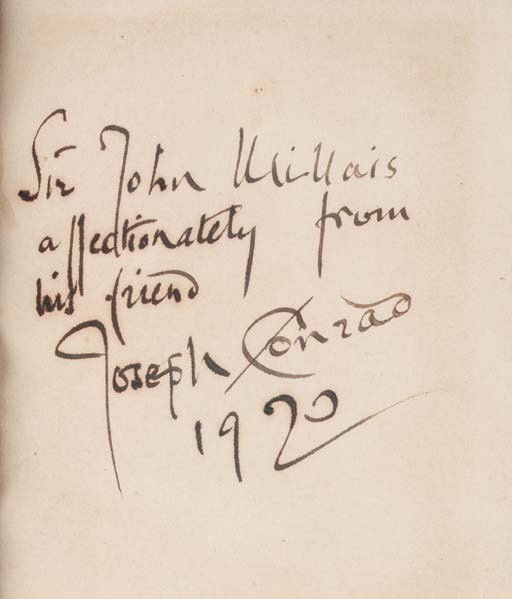 Sir John Millais
affectionately from
his friend
Joseph Conrad
1920